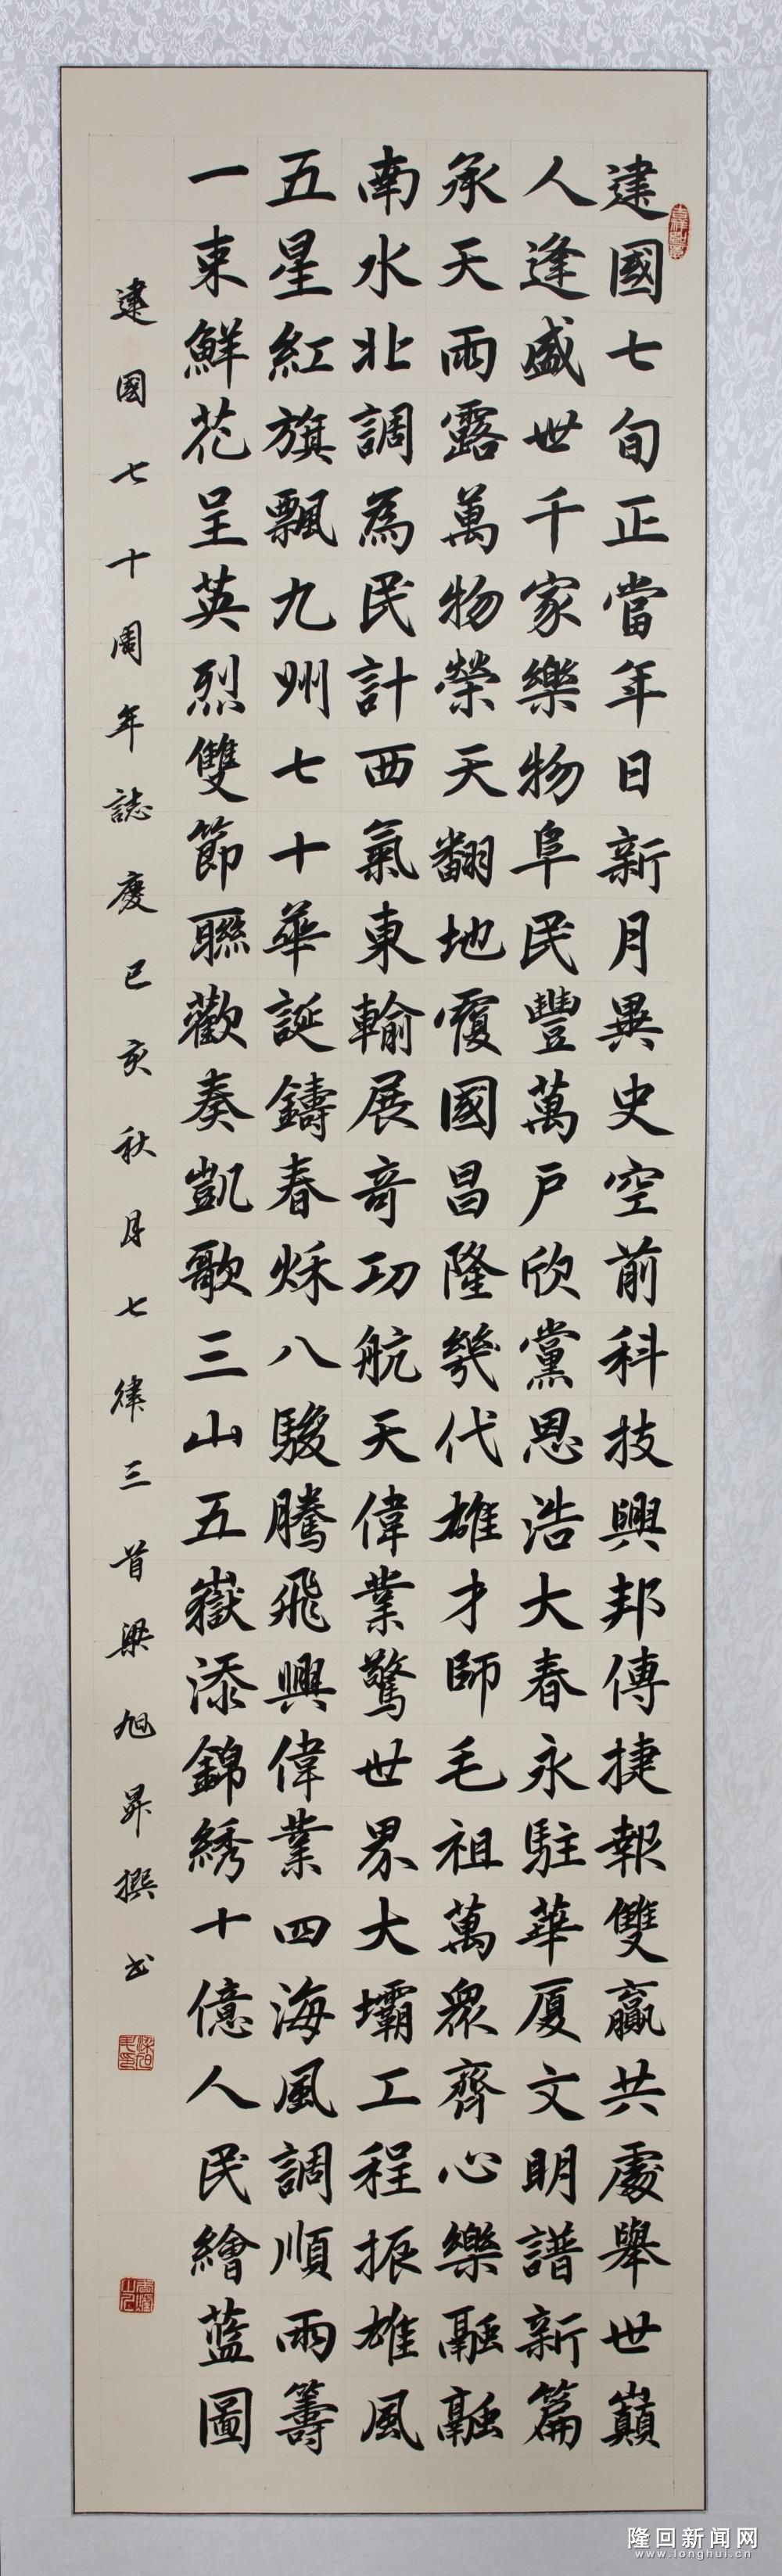 建國七旬正當年日新月異史空前科技興邦傳捷報雙贏共處舉世巔
人逢盛世千家樂物阜民豐萬戶欣黨恩浩大春永駐華廈文明譜新篇
承天雨露萬物榮天翻地覆國昌隆幾代雄才師毛祖萬眾齊心樂融融
南水北調為民計西氣東輸展奇功航天偉業驚世界大壩工程振雄風
五星紅旗飄九州七十華誕鑄春秋八駿騰飛興偉業四海風調順雨籌
一束鮮花呈英烈雙節聯歡奏凱歌三山五嶽添錦綉十億人民繪藍圖
建國七十周年誌慶己亥秋月七律三首梁旭昇撰書
隆回新闻网
www.longhui.cn